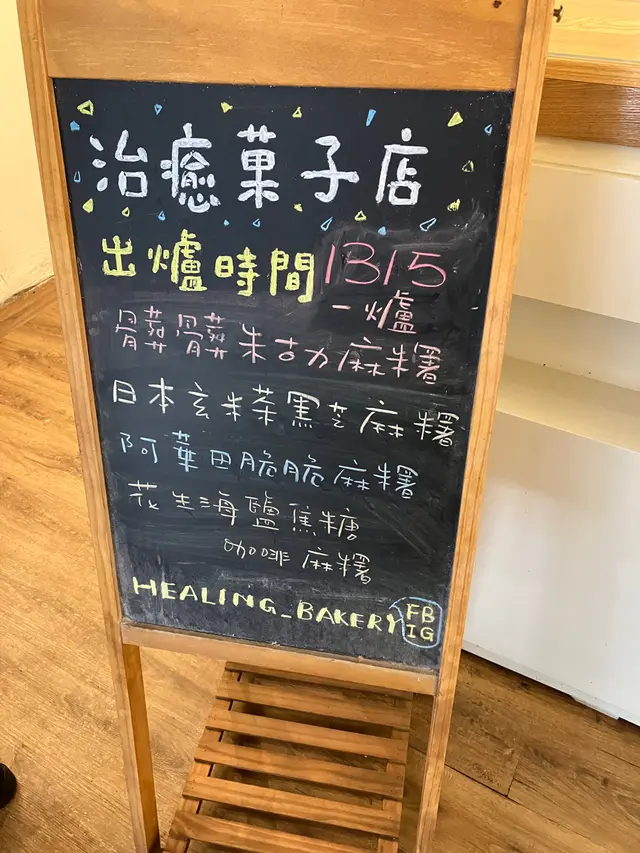 治癒菓子店
出爐時間 1315
一爐
髒髒朱古力麻糬
日本玄米茶黑芝麻糬
阿華田脆脆麻糬
花生海鹽焦糖
咖啡麻糬
HEALING_BAKERY FB
IG